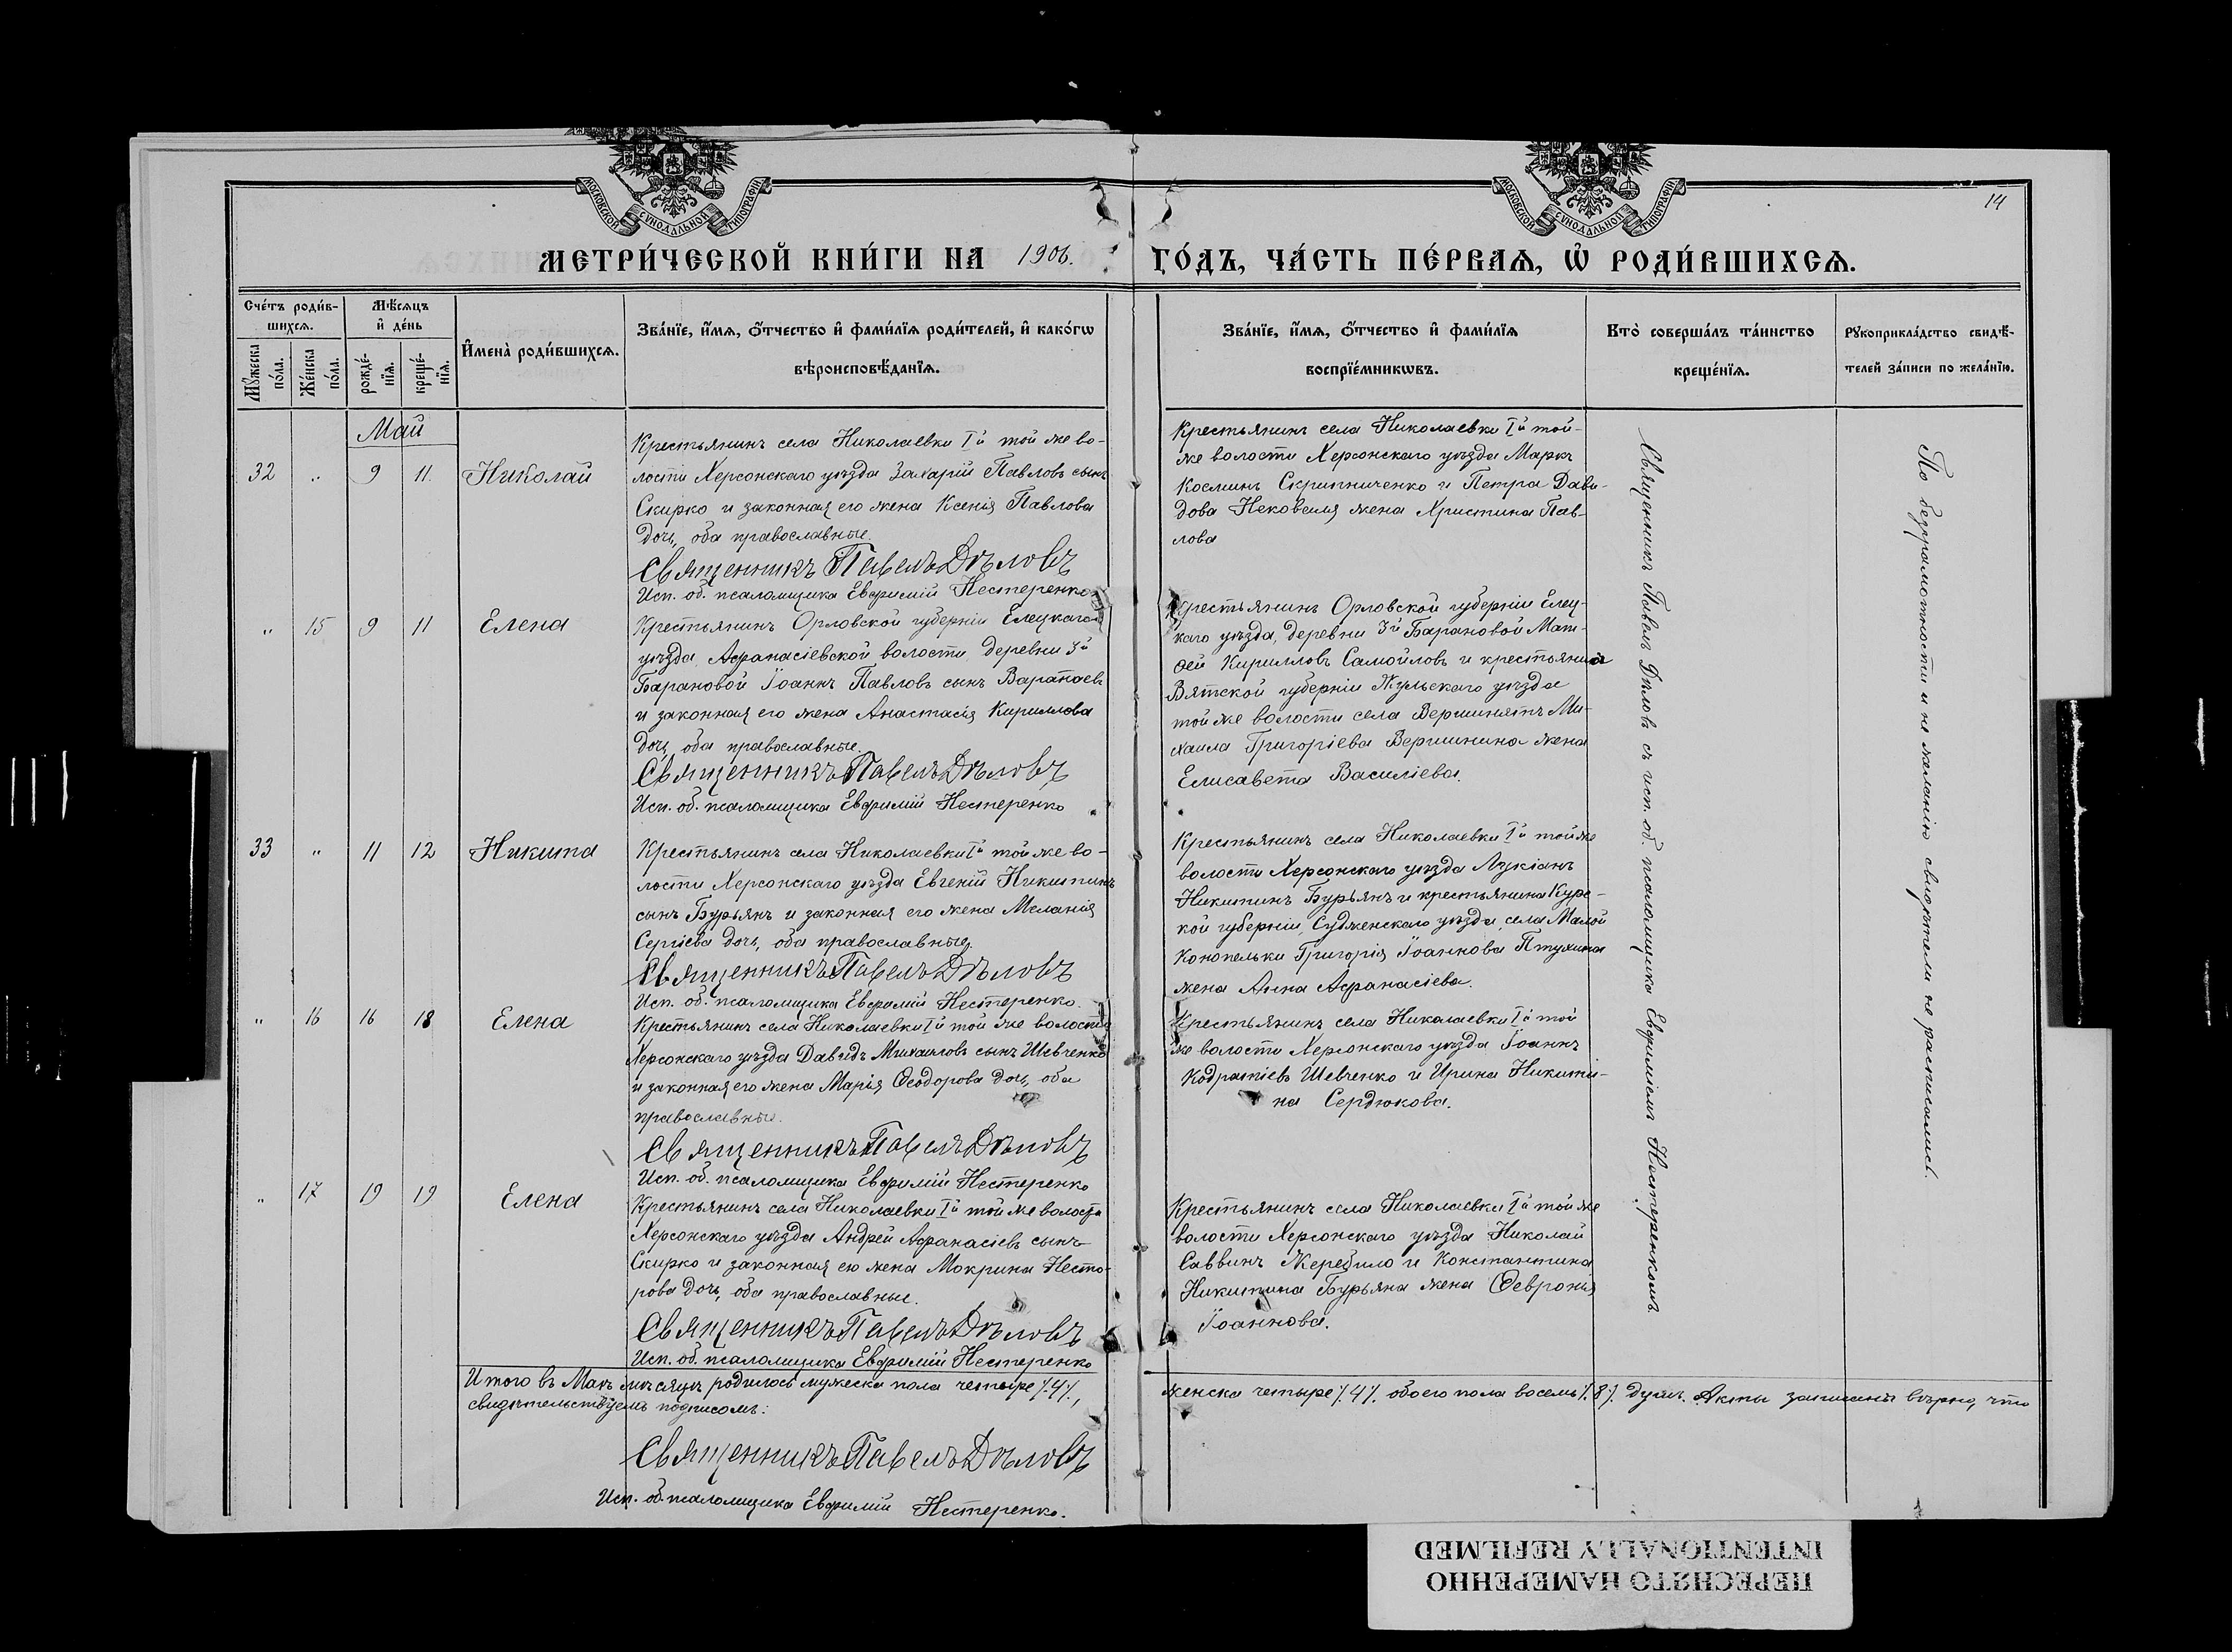 МОСКОВСКОЙ СУНОДАЛЬНОЙ ТИПОГРАФІИ
МОСКОВСКОЙ СУНОДАЛЬНОЙ ТИПОГРАФІИ
14
МЕТРИ́ЧЕСКОЙ КНИ́ГИ НА 1906. ГО́ДЪ, ЧА́СТЬ ПЕ́РВАѦ, Ѡ҆ РОДИ́ВШИХСѦ.
Сче́тъ роди́в-
шихсѧ.
Мꙋ́жеска
по́ла.
Же́нска
по́ла.
Мѣ́сѧцъ
и҆ де́нь
рожде́-
нїѧ.
креще́-
нїѧ.
И҆мена̀ роди́вшихсѧ.
Зва́нїе, и҆́мѧ, ѻ҆́тчество и҆ фами́лїѧ роди́телей, и҆ како́гѡ
вѣроисповѣ́данїѧ.
Зва́нїе, и҆́мѧ, ѻ҆́тчество и҆ фами́лїѧ
воспрїе́мникѡвъ.
Кто̀ соверша́лъ та́инство
креще́нїѧ.
Рꙋкоприкла́дство свидѣ́-
телей за́писи по жела́нїю.
Май
32 „ 9 11 Николай
Крестьянинъ села Николаевки Iй той же во-
лости Херсонскаго уѣзда Захарій Павловъ сынъ
Скирко и законная его жена Ксенія Павлова
дочь, оба православные.
Священникъ Павелъ Дѣловъ
Исп. об. псаломщика Евфимій Нестеренко
Крестьянинъ села Николаевки Iй той-
же волости Херсонскаго уѣзда Маркъ
Косминъ Скрипниченко и Петра Дави-
дова Нековеля жена Христина Пав-
лова
„ 15 9 11 Елена
Крестьянинъ Орловской губерніи Елецкаго
уѣзда, Афанасіевской волости, деревни 3й
Барановой Іоаннъ Павловъ сынъ
и законная его жена Анастасія Кириллова
дочь, оба православные.
Священникъ Павелъ Дѣловъ
Исп. об. псаломщика Евфимій Нестеренко
Крестьянинъ Орловской губерніи Елец-
каго уѣзда, деревни 3й Барановой Мат-
ѳей Кирилловъ Самойловъ и крестьянина
Вятской губерніи уѣзда
той же волости села Вершинятъ Ми-
хаила Григоріева Вершинина жена
Елисавета Василіева.
33 „ 11 12 Никита
Крестьянинъ села Николаевки Iй той же во-
лости Херсонскаго уѣзда Евгеній Никитинъ
сынъ Бурьянъ и законная его жена Меланія
Сергіева дочь, оба православные.
Священникъ Павелъ Дѣловъ
Исп. об. псаломщика Евфимій Нестеренко.
Крестьянинъ села Николаевки Iй той же
волости Херсонскаго уѣзда Лукіанъ
Никитинъ Бурьянъ и крестьянина Курс-
кой губерніи, Судженскаго уѣзда, села Малой
Конопельки Григорія Іоаннова Птухина
жена Анна Афанасіева.
„ 16 16 18 Елена
Крестьянинъ села Николаевки Iй той же волости
Херсонскаго уѣзда Давидъ Михаиловъ сынъ Шевченко
и законная его жена Марія Ѳеодорова дочь, оба
православные.
Священникъ Павелъ Дѣловъ
Исп. об. псаломщика Евфимій Нестеренко
Крестьянинъ села Николаевки Iй той
же волости Херсонскаго уѣзда Іоаннъ
Кодратіевъ Шевченко и Ирина Никити-
на Сердюкова.
„ 17 19 19 Елена
Крестьянинъ села Николаевки Iй той же волости
Херсонскаго уѣзда Андрей Афанасіевъ сынъ
Скирко и законная его жена Мокрина Несто-
рова дочь, оба православные.
Священникъ Павелъ Дѣловъ
Исп. об. псаломщика Евфимій Нестеренко
Крестьянинъ села Николаевки Iй той же
волости Херсонскаго уѣзда Николай
Саввинъ Жеребило и Константина
Никитина Бурьяна жена Ѳевронія
Іоаннова.
Священникъ Павелъ Дѣловъ съ исп. об. псаломщика Евфиміемъ Нестеренкомъ.
По безграмотности и не желанію свидѣтели не расписались.
Итого въ Маѣ мѣсяцѣ родилось мужеска пола четыре /.4/., женска четыре /.4/. обоего пола восемь /.8/. душъ. Акты записаны вѣрно, что
свидѣтельствуемъ подписомъ:
Священникъ Павелъ Дѣловъ
Исп. об. псаломщика Евфимій Нестеренко.
ПЕРЕСНЯТО НАМЕРЕННО
INTENTIONALLY REFILMED